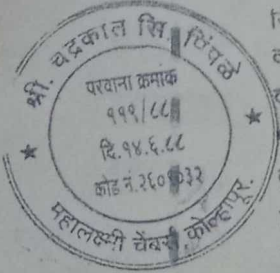 श्री. चद्रकात सि. पिंपळे
परवाना क्रमाक
११९/८८
दि.१४.६.८८
कोड नं.२६०१०३२
महालक्ष्मी चेंबर्स, कोल्हापूर.